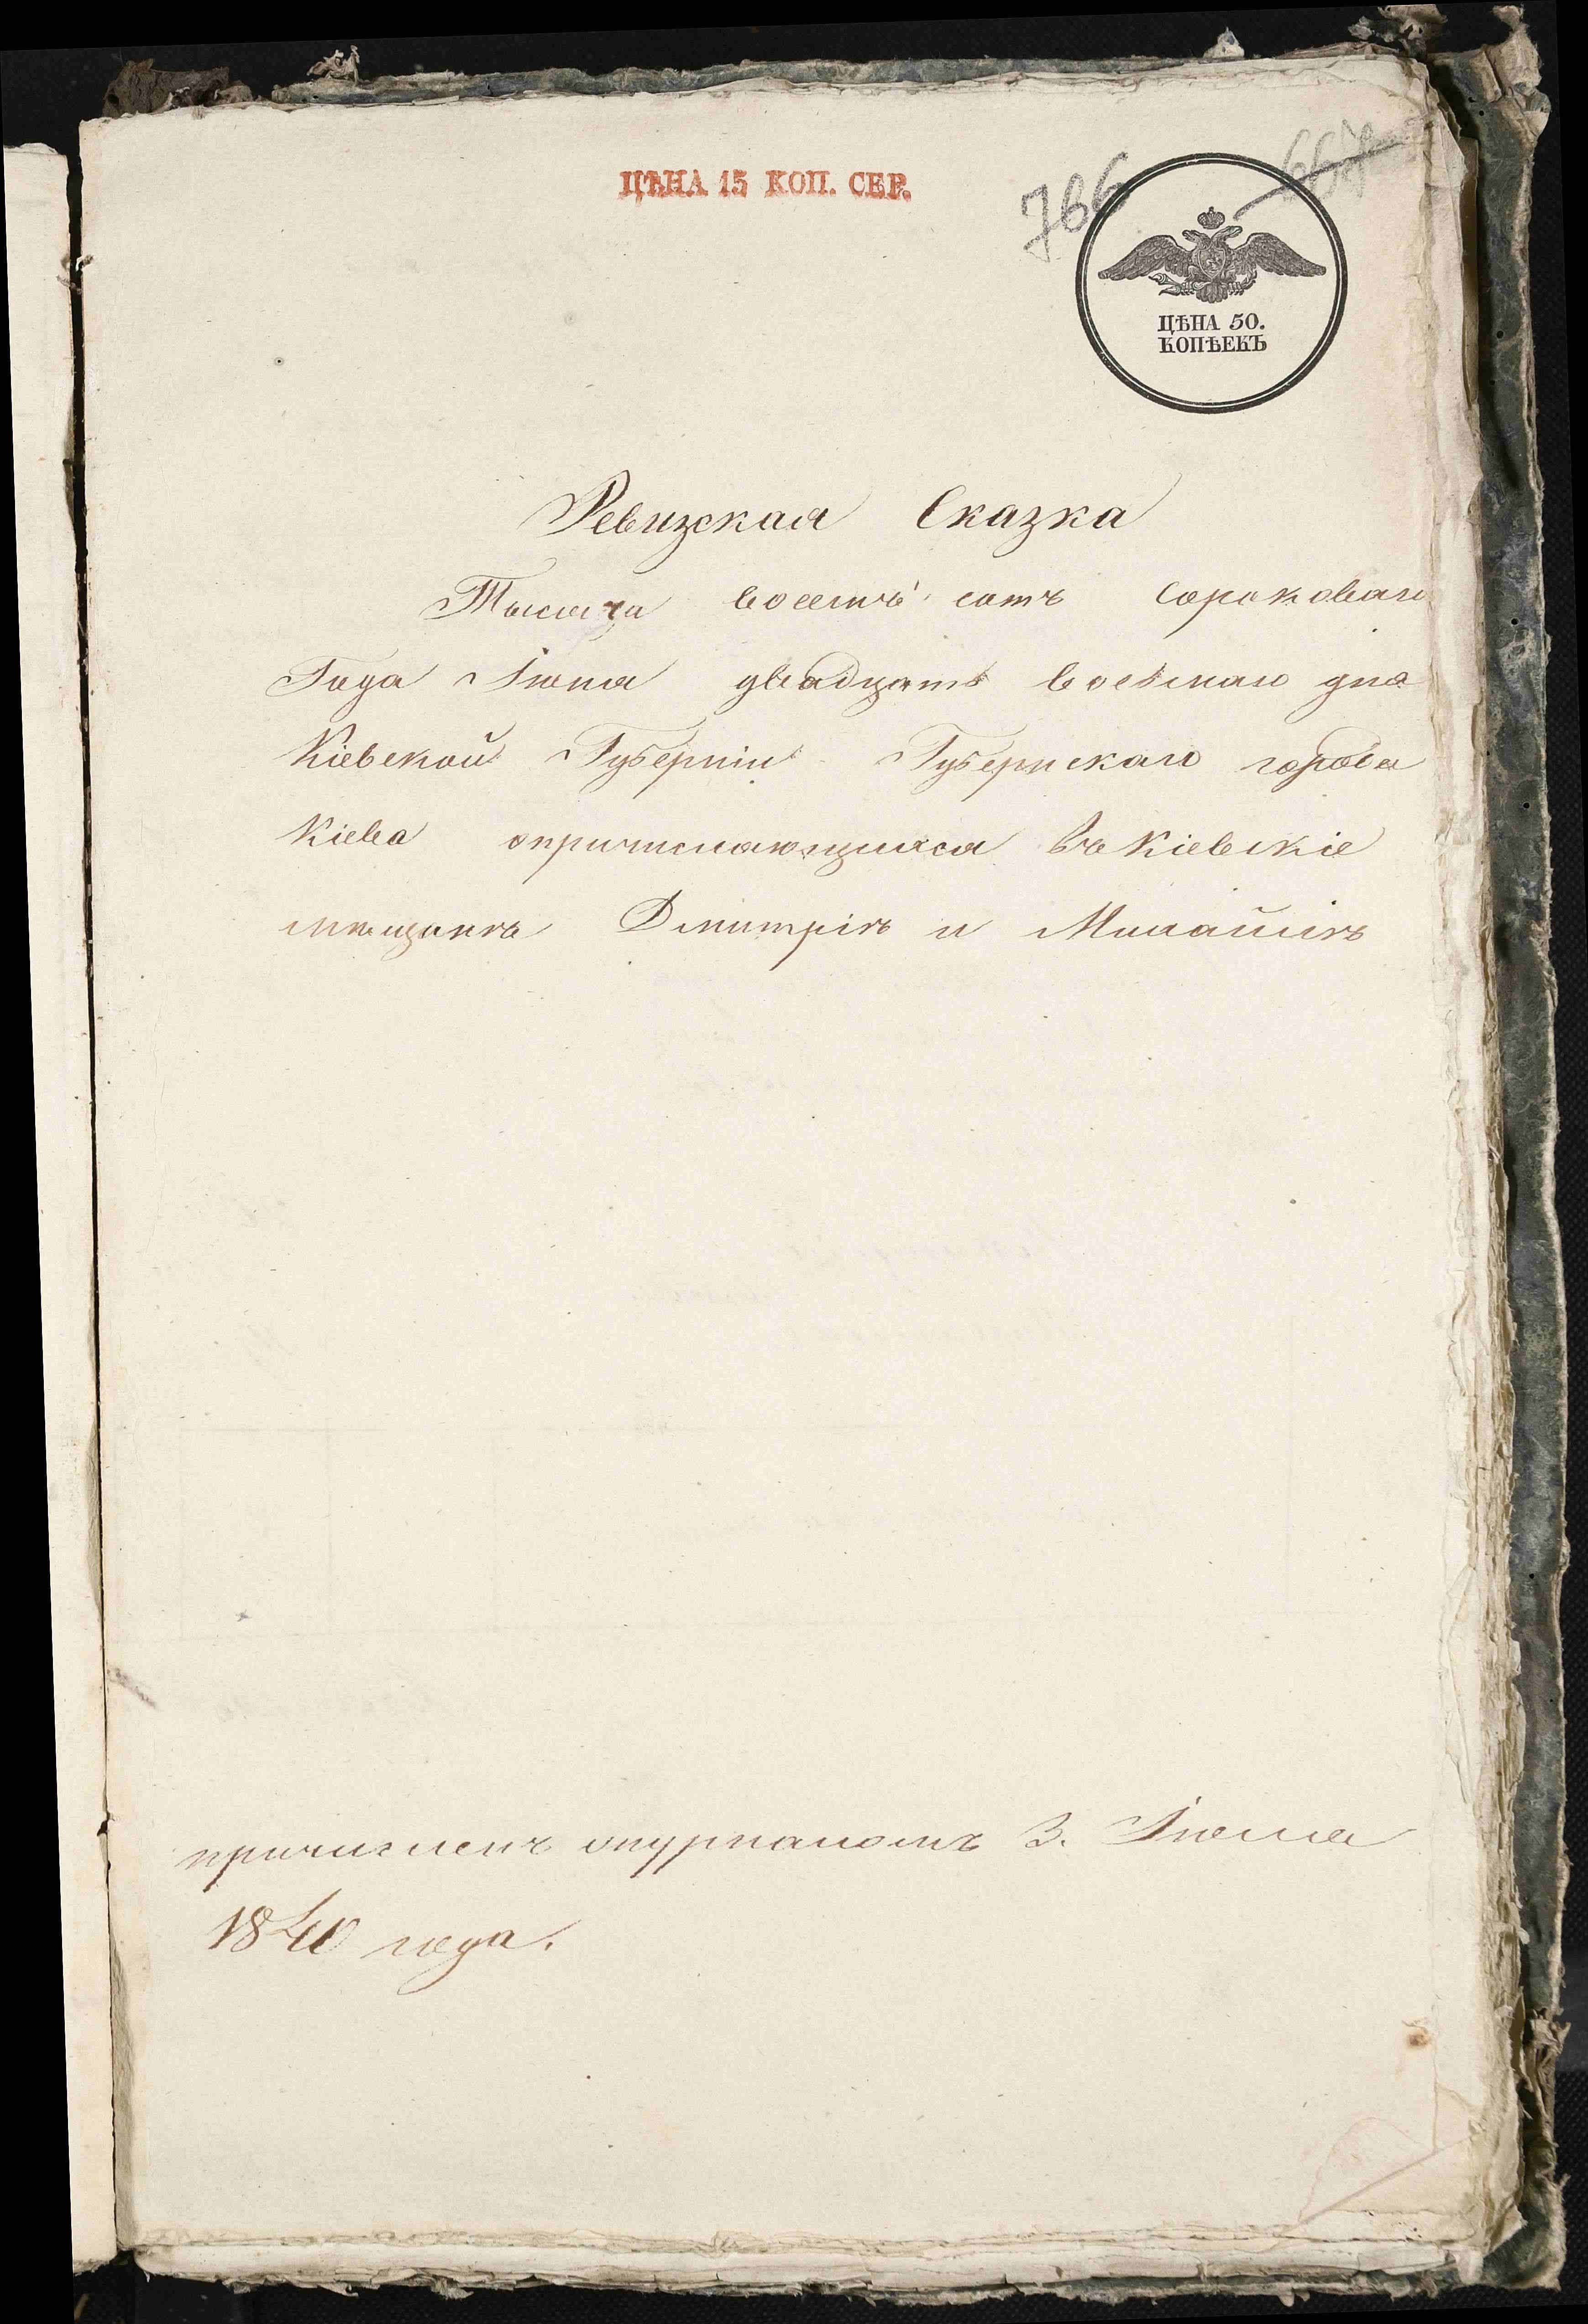 ЦѢНА 15 КОП. СЕР.
766
667
ЦѢНА 50.
КОПѢЕКЪ
Ревизская Сказка
Тысяча восемъ сотъ сороковаго
Года Іюня двадцать восьмаго дня
Кіевской Губерніи Губернскаго города
Кіева опричисляющихся въ Кіевскіе
мѣщанѣ Дмитріѣ и
причисленъ опурналомъ 3. Іюля
1840 года.